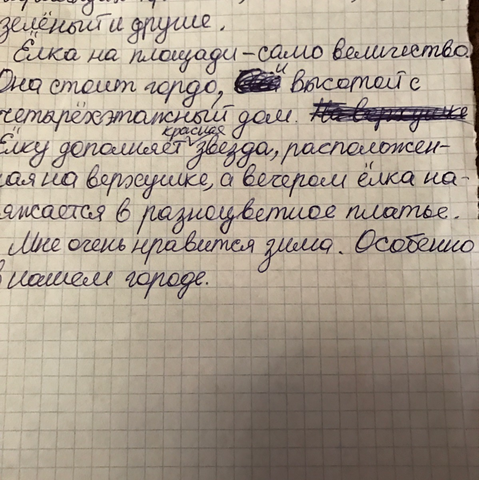 зелёный и другие.
Ёлка на площади - само величество.
Она стоит гордо, и высотой с
четырёхэтажный дом.
красная
Ёлку дополняет звезда, расположен-
ная на верхушке, а вечером ёлка на-
яжается в разноцветное платье.
Мне очень нравится зима. Особенно
в нашем городе.